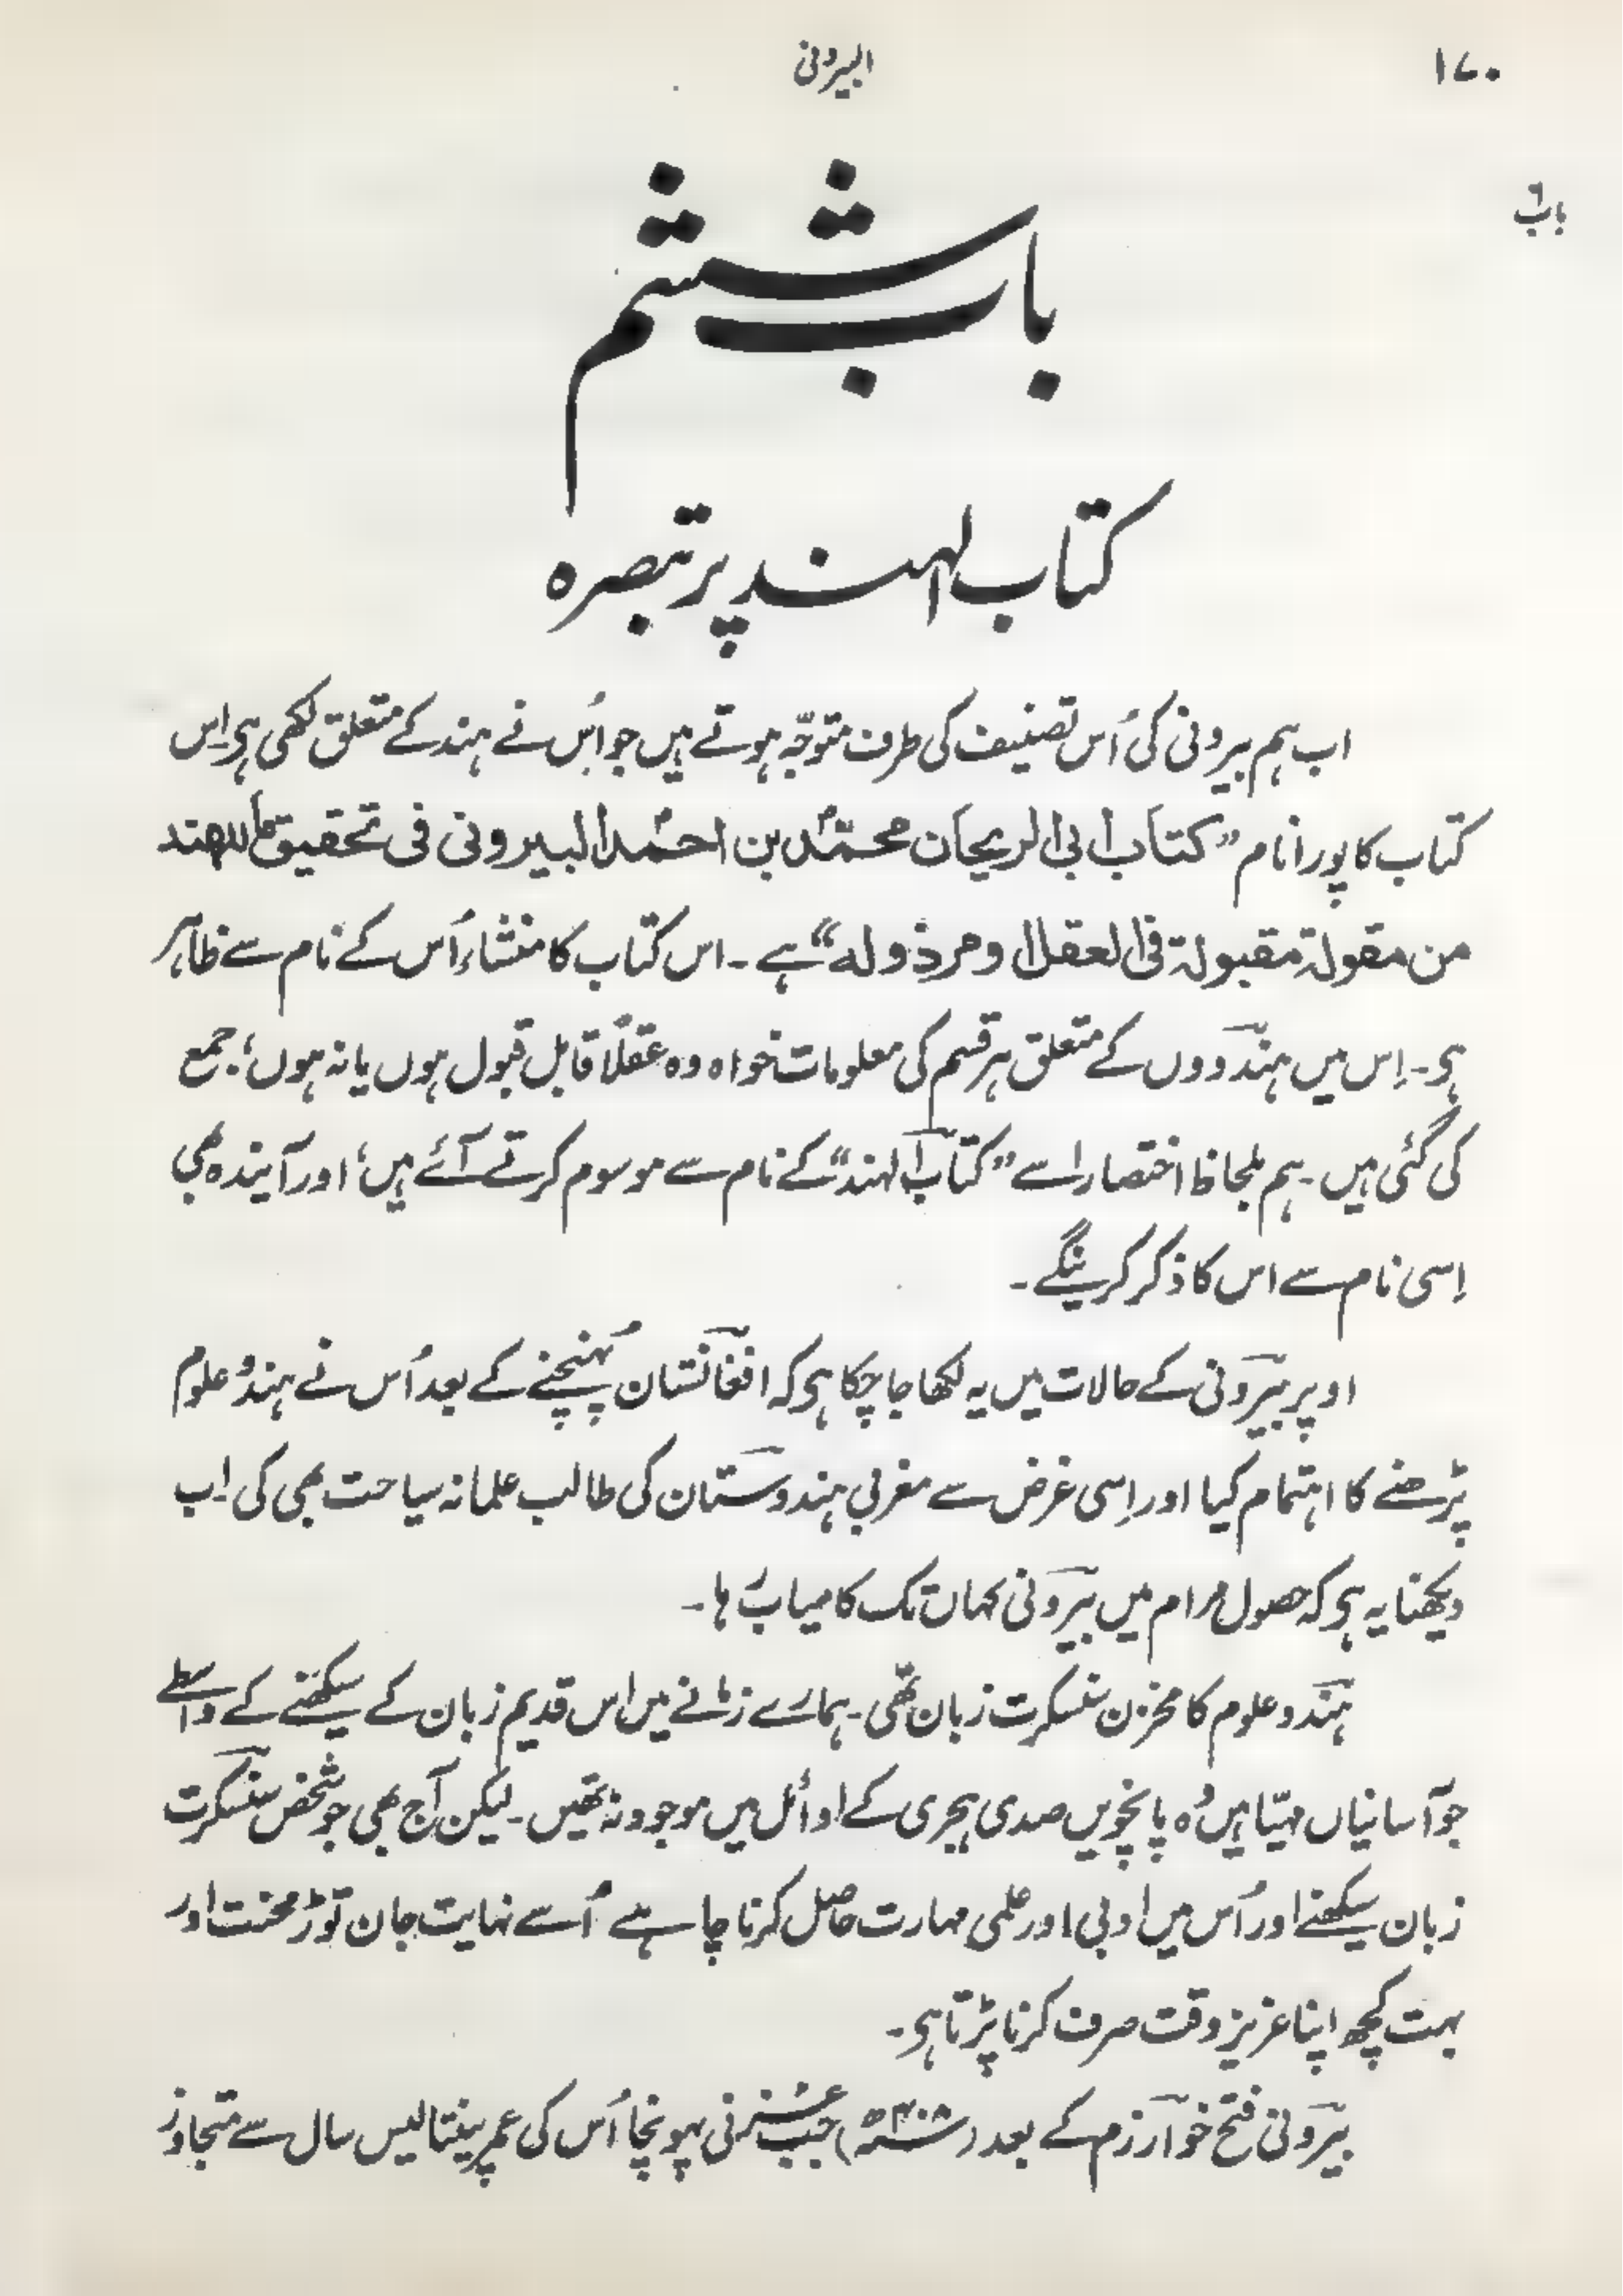 ۱۷۰
البیرونی
باب ۶
باب ششم
کتاب الہند پر تبصرہ
اب ہم بیرونی کی اُس تصنیف کی طرف متوجّہ ہوتے ہیں جو اُس نے ہند کے متعلق لکھی ہی۔ اِس
کتاب کا پورا نام ”کتاب ابی الریحان محمّد بن احمد البیرونی فی تحقیق ما للھند
من مقولة مقبولة فی العقل او مرذولہ“ ہے ۔ اس کتاب کا منشاء اُس کے نام سے ظاہر
ہی۔ اِس میں ہندووں کے متعلق ہر قسم کی معلومات خواہ وہ عقلًا قابل قبول ہوں یا نہ ہوں؛ جمع
کی گئی ہیں ۔ ہم بلحاظ اختصار اسے ”کتاب الہند“ کے نام سے موسوم کرتے آئے ہیں؛ اور آیندہ بھی
اِسی نام سے اس کا ذکر کرینگے ۔
اوپر بیرونی کے حالات میں یہ لکھا جا چکا ہی کہ افغانستان پہُنچنے کے بعد اُس نے ہندو علوم
پڑھنے کا اہتمام کیا اور اِسی غرض سے مغربی ہندوستان کی طالب علمانہ سیاحت بھی کی۔ اب
دیکھنا یہ ہی کہ حصول مرام میں بیرونی کہاں تک کامیاب رہا ۔
ہندو علوم کا مخزن سنسکرت زبان تھی ۔ ہمارے زمانے میں اس قدیم زبان کے سیکھنے کے واسطے
جو آسانیاں مہیّا ہیں وُہ پانچویں صدی ہجری کے اوائل میں موجود نہ تھیں ۔ لیکن آج بھی جو شخص سنسکرت
زبان سیکھنے اور اُس میں ادبی اور علمی مہارت حاصل کرنا چاہے اُسے نہایت جان توڑ محنت اور
بہت کچھ اپنا عزیز وقت صرف کرنا پڑتا ہی ۔
بیرونی فتح خوارزم کے بعد (۴۰۸ھ) جب غزنی پہونچا اُس کی عمر پینتالیس سال سے متجاوز